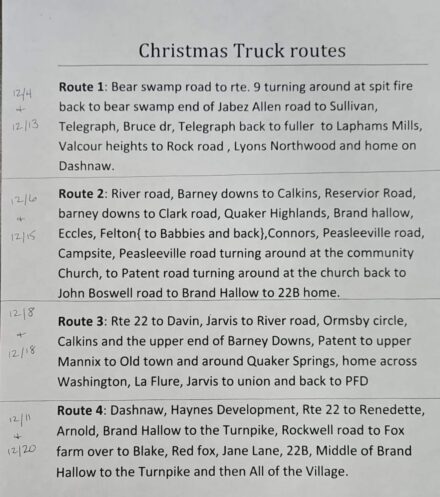 Christmas Truck routes
12/4
+
12/13
Route 1: Bear swamp road to rte. 9 turning around at spit fire
back to bear swamp end of Jabez Allen road to Sullivan,
Telegraph, Bruce dr, Telegraph back to fuller to Laphams Mills,
Valcour heights to Rock road , Lyons Northwood and home on
Dashnaw.
12/6
+
12/15
Route 2: River road, Barney downs to Calkins, Reservior Road,
barney downs to Clark road, Quaker Highlands, Brand hallow,
Eccles, Felton{ to Babbies and back},Connors, Peasleeville road,
Campsite, Peasleeville road turning around at the community
Church, to Patent road turning around at the church back to
John Boswell road to Brand Hallow to 22B home.
12/8
+
12/18
Route 3: Rte 22 to Davin, Jarvis to River road, Ormsby circle,
Calkins and the upper end of Barney Downs, Patent to upper
Mannix to Old town and around Quaker Springs, home across
Washington, La Flure, Jarvis to union and back to PFD
12/11
+
12/20
Route 4: Dashnaw, Haynes Development, Rte 22 to Renedette,
Arnold, Brand Hallow to the Turnpike, Rockwell road to Fox
farm over to Blake, Red fox, Jane Lane, 22B, Middle of Brand
Hallow to the Turnpike and then All of the Village.